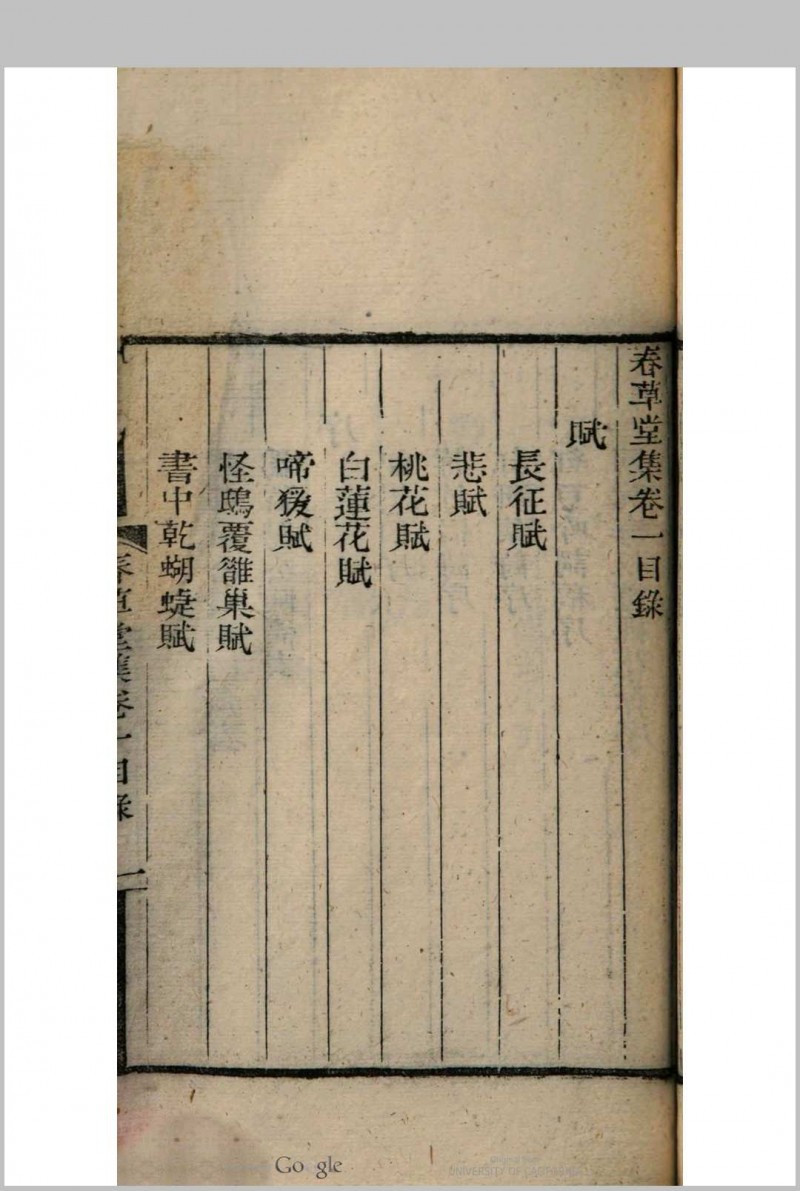 春草堂集卷一目錄
賦
長征賦
悲賦
桃花賦
白蓮花賦
啼猨賦
怪鴟覆雛巢賦
書中乾蝴蜨賦
春草堂集卷一目錄
一
Google